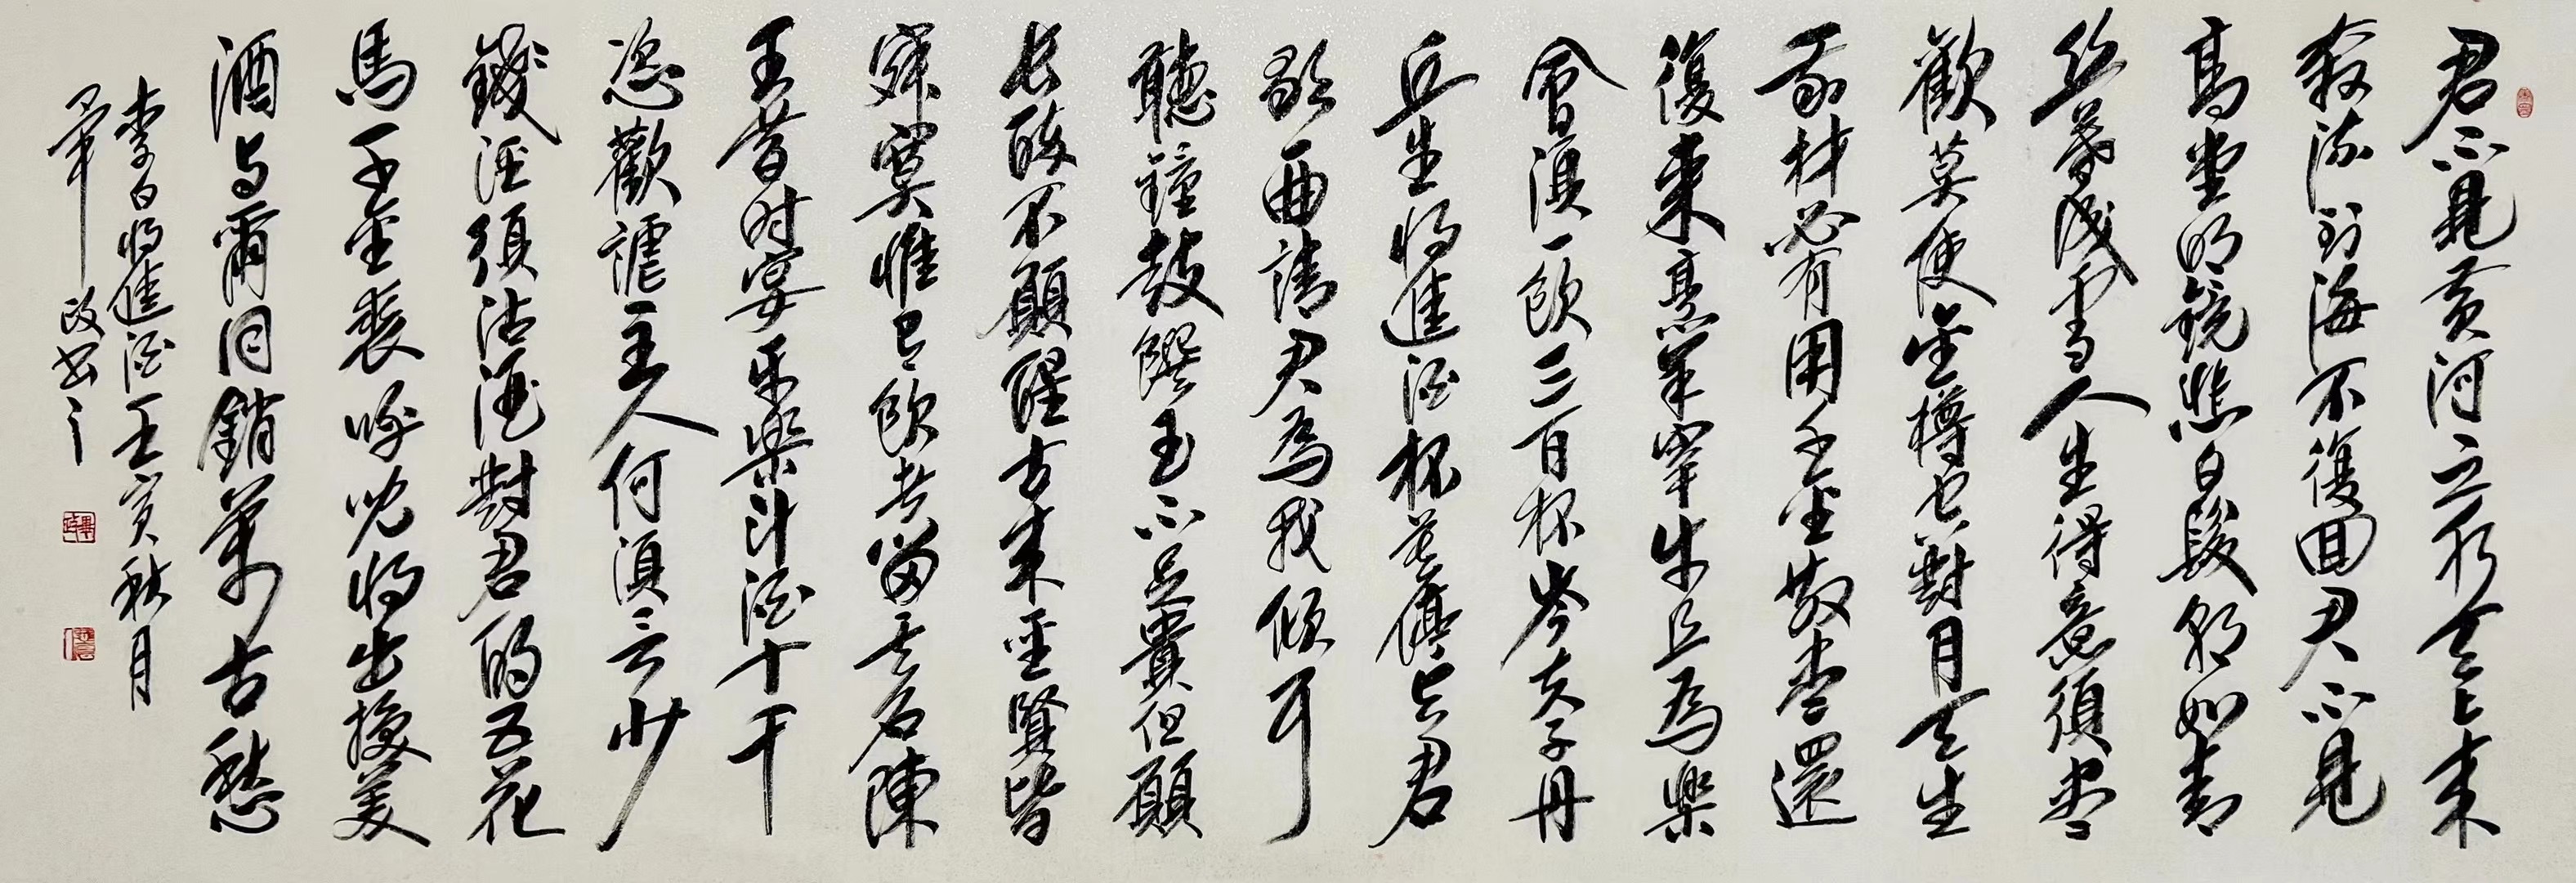 君不見黄河之水天上来
奔流到海不復回君不見
高堂明鏡悲白髮朝如青
丝暮成雪人生得意須尽
歡莫使金樽空對月天生
我材必有用千金散尽還
復来烹羊宰牛且为樂
會須一飲三百杯岑夫子丹
丘生将進酒杯莫停与君
歌一曲請君为我傾耳
聽鐘鼓饌玉不足貴但願
长醉不願醒古来聖賢皆
寂寞惟有飲者留其名陳
王昔时宴平樂斗酒十千
恣歡謔主人何須言少
錢徑須沽酒對君酌五花
馬千金裘呼児将出換美
酒与爾同銷萬古愁
李白将進酒壬寅秋月
政书之